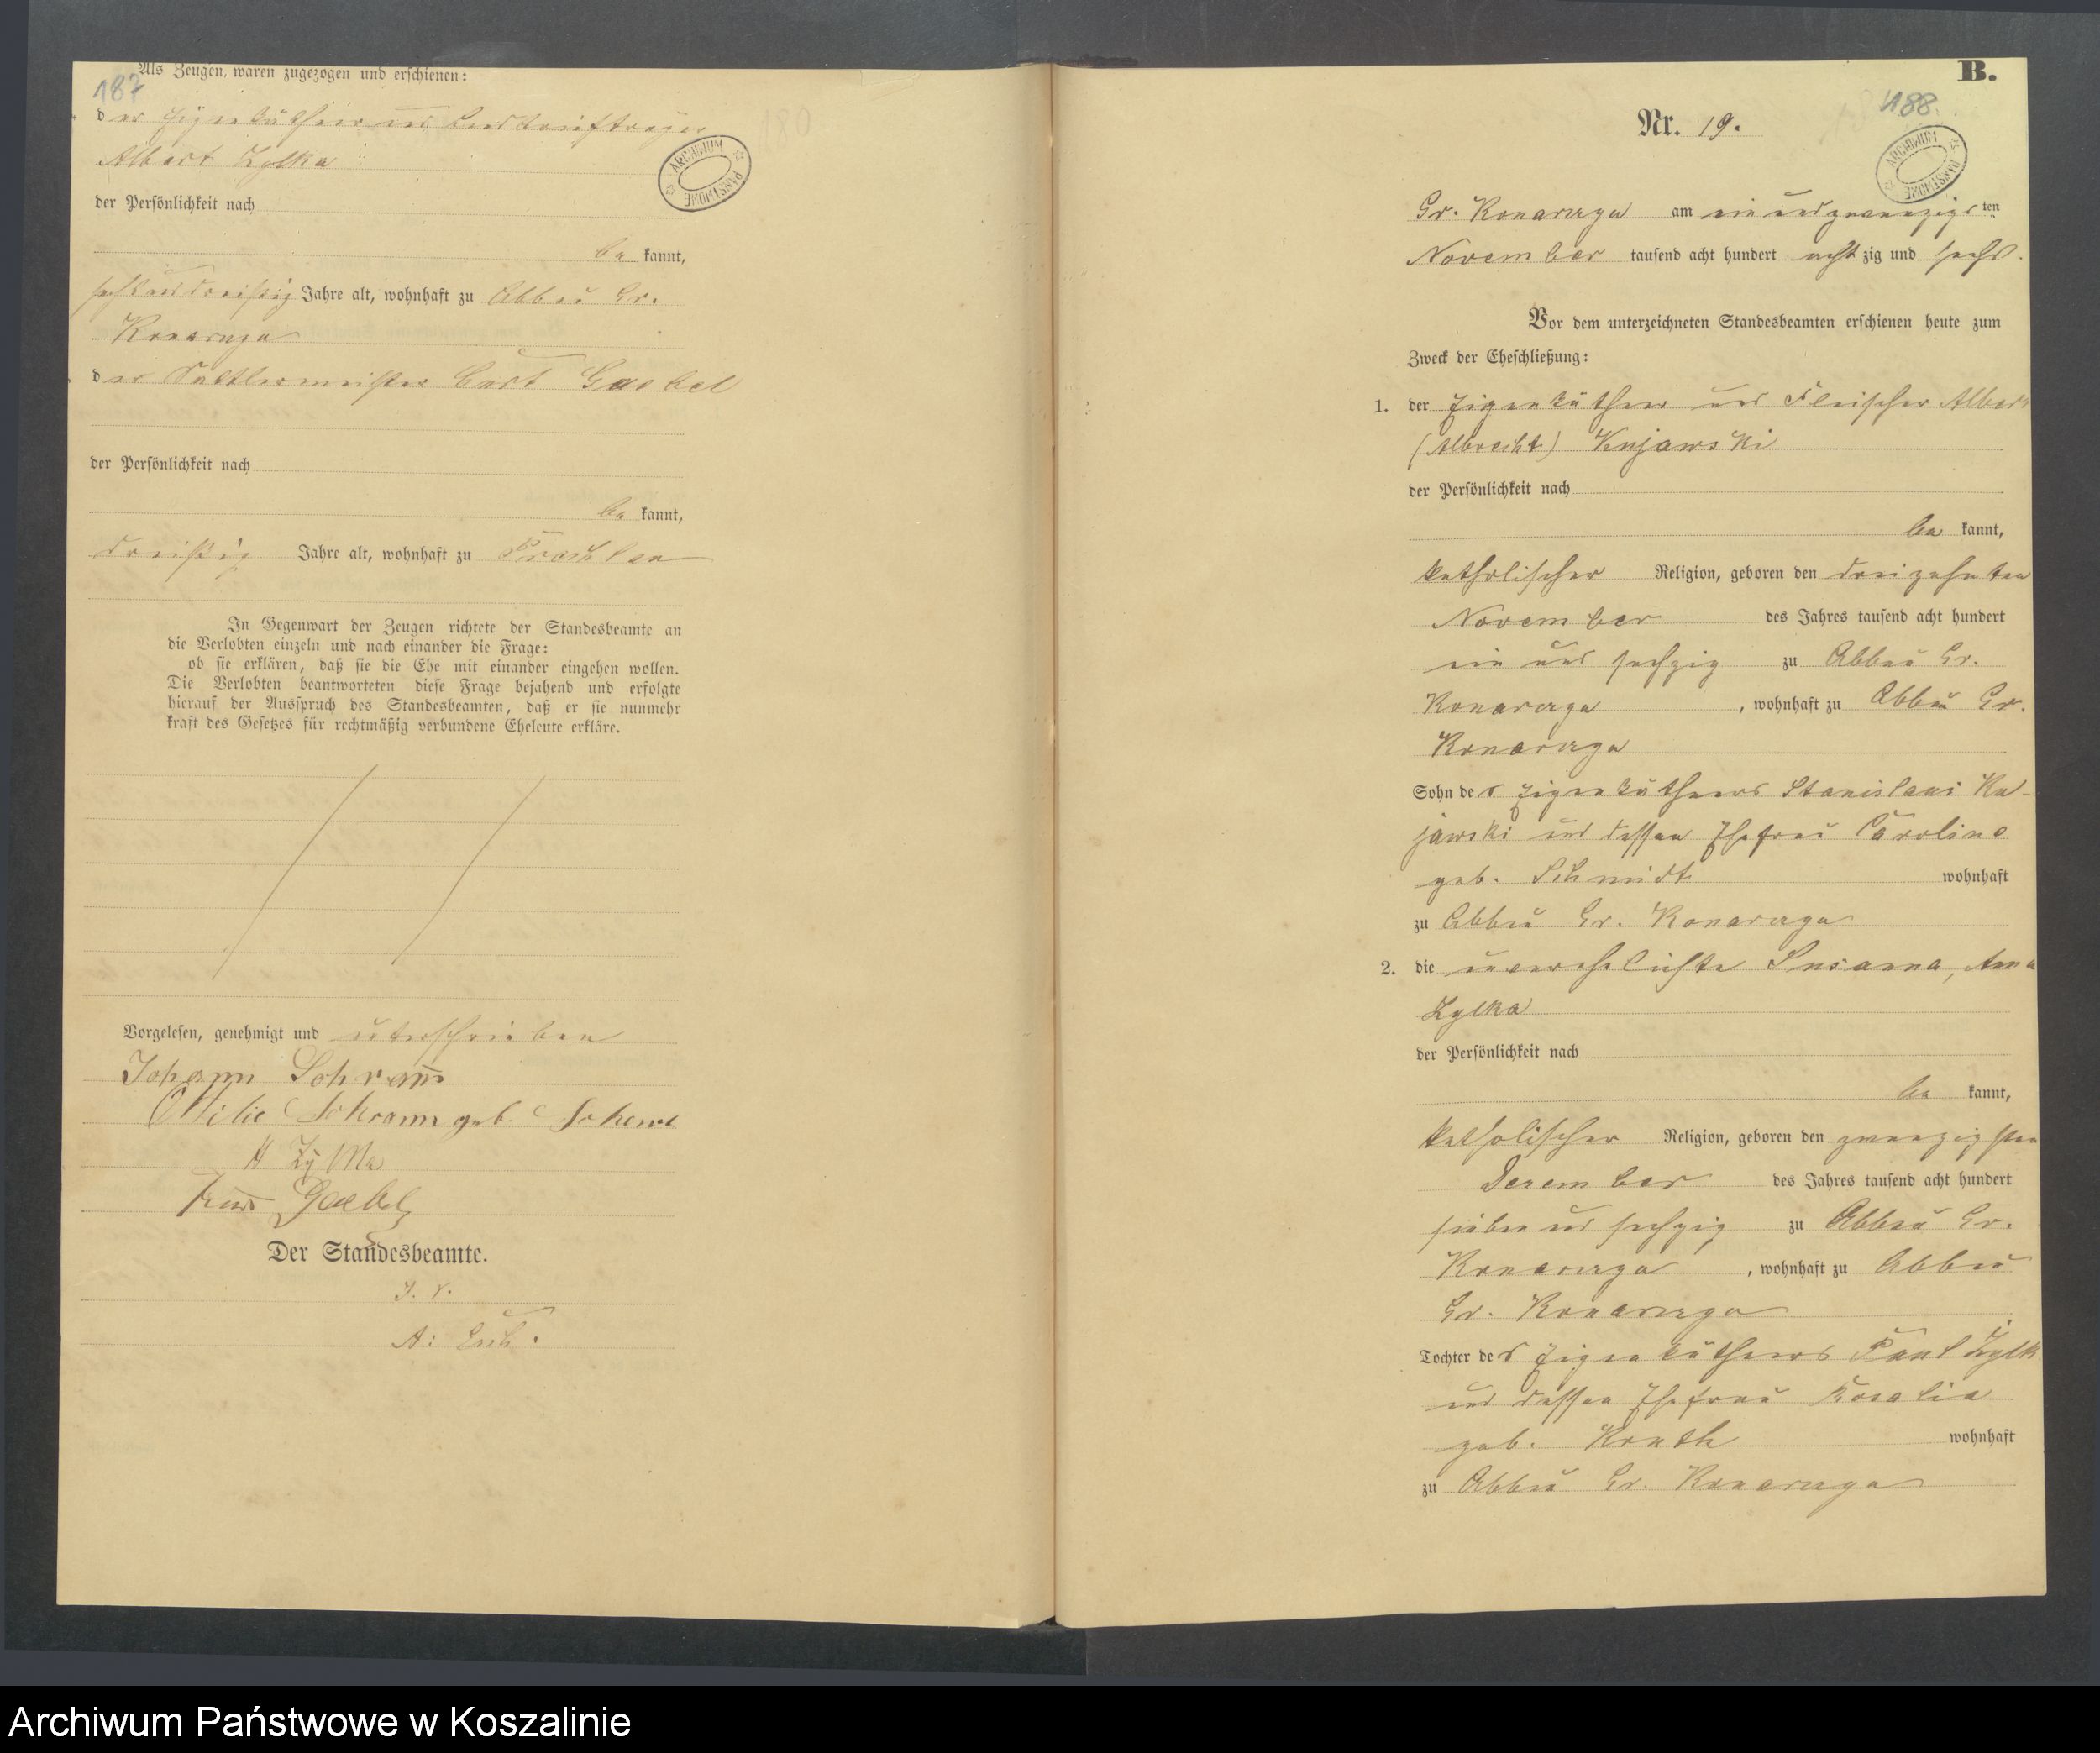 Als Zeugen waren zugezogen und erschienen:
187
der Eigenkäthner und Landbriefträger
Albert Zylka
der Persönlichkeit nach
be kannt,
sechsunddreißig Jahre alt, wohnhaft zu Abbau Gr.
Konarzyn
der Sattlermeister Curt Gaebel
der Persönlichkeit nach
be kannt,
dreißig Jahre alt, wohnhaft zu Prechlau
In Gegenwart der Zeugen richtete der Standesbeamte an
die Verlobten einzeln und nach einander die Frage:
ob sie erklären, daß sie die Ehe mit einander eingehen wollen.
Die Verlobten beantworteten diese Frage bejahend und erfolgte
hierauf der Ausspruch des Standesbeamten, daß er sie nunmehr
kraft des Gesetzes für rechtmäßig verbundene Eheleute erkläre.
Vorgelesen, genehmigt und unterschrieben
Johann Schram
Ottilie Schramm geb.
A Zylka
Gaebel
Der Standesbeamte.
J. V.
A:
ARCHIWUM PAŃSTWOWE
B.
188.
Nr. 19.
ARCHIWUM PAŃSTWOWE
Gr. Konarzyn am ein und zwanzigsten
November tausend acht hundert acht zig und sechs.
Vor dem unterzeichneten Standesbeamten erschienen heute zum
Zweck der Eheschließung:
1. der Eigenkäthner und Fleischer Albert
(Albrecht) Kujawski
der Persönlichkeit nach
be kannt,
katholischer Religion, geboren den dreizehnten
November des Jahres tausend acht hundert
ein und sechzig zu Abbau Gr.
Konarzyn, wohnhaft zu Abbau Gr.
Konarzyn
Sohn des Eigenkäthners Stanislaus Ku-
jawski und dessen Ehefrau Caroline
geb. Schmidt wohnhaft
zu Abbau Gr. Konarzyn
2. die unverehelichte Susanna, Anna
Zylka
der Persönlichkeit nach
be kannt,
katholischer Religion, geboren den zwanzigsten
Dezember des Jahres tausend acht hundert
sieben und sechzig zu Abbau Gr.
Konarzyn, wohnhaft zu Abbau
Gr. Konarzyn
Tochter des Eigenkäthners Paul Zylk
und dessen Ehefrau Rosalia
geb. wohnhaft
zu Abbau Gr. Konarzyn
Archiwum Państwowe w Koszalinie